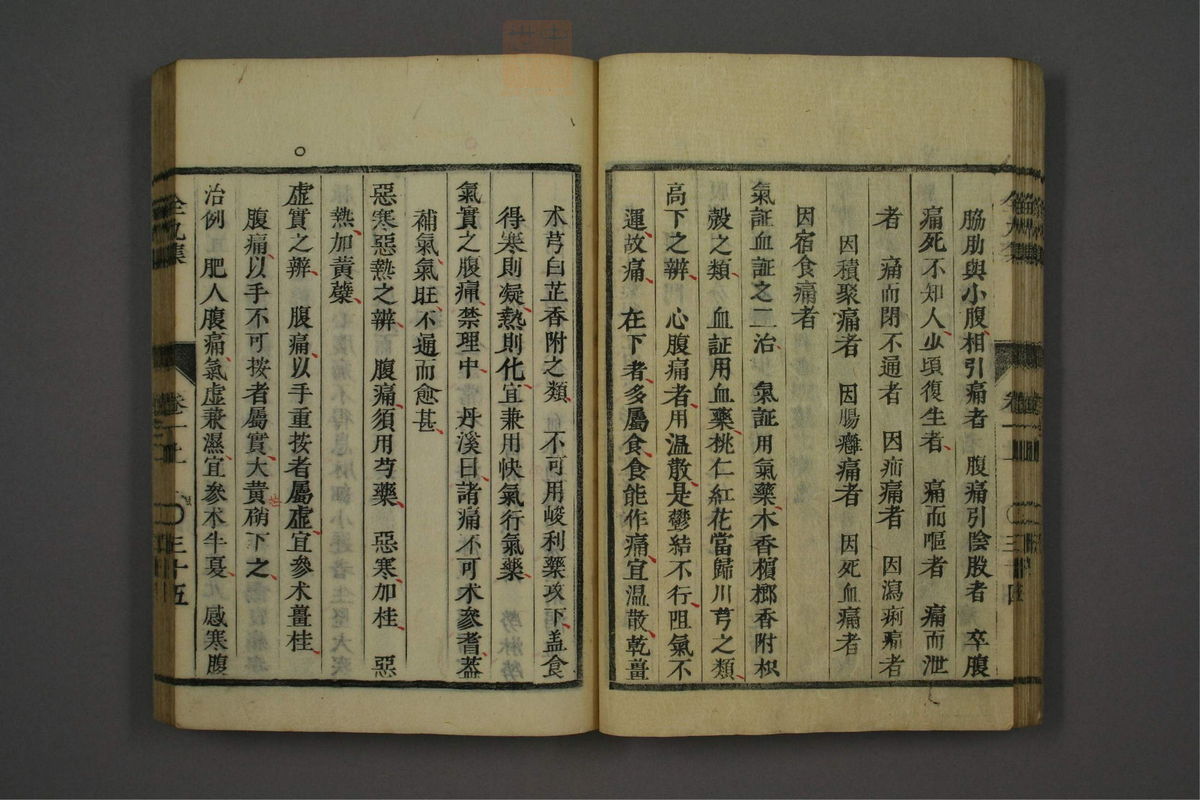 脇肋與小腹相引痛者 腹痛引陰股者 卒腹
痛死不知人少頃復生者 痛而嘔者 痛而泄
者 痛而閉不通者 因疝痛者 因瀉痢痛者
因積聚痛者 因腸癰痛者 因死血痛者
因宿食痛者
氣証血証之二治 氣証用氣藥木香檳榔香附枳
殼之類 血証用血藥桃仁紅花當歸川芎之類
高下之辨 心腹痛者用温散是鬱結不行阻氣不
運故痛 在下者多屬食食能作痛宜温散乾薑
卷一上 三十四
朮芎白芷香附之類 不可用峻利藥攻下盖食
得寒則凝熱則化宜兼用快氣行氣藥
氣實之腹痛禁理中 丹溪曰諸痛不可朮參耆葢
補氣氣旺不通而愈甚
惡寒惡熱之辨 腹痛須用芍藥 惡寒加桂 惡
熱加黄蘗
虚實之辨 腹痛以手重按者屬虚宜參朮薑桂
腹痛以手不可按者屬實大黄硝下之
治例 肥人腹痛氣虚兼濕宜參朮半夏 感寒腹
全九集 卷一上 三十五